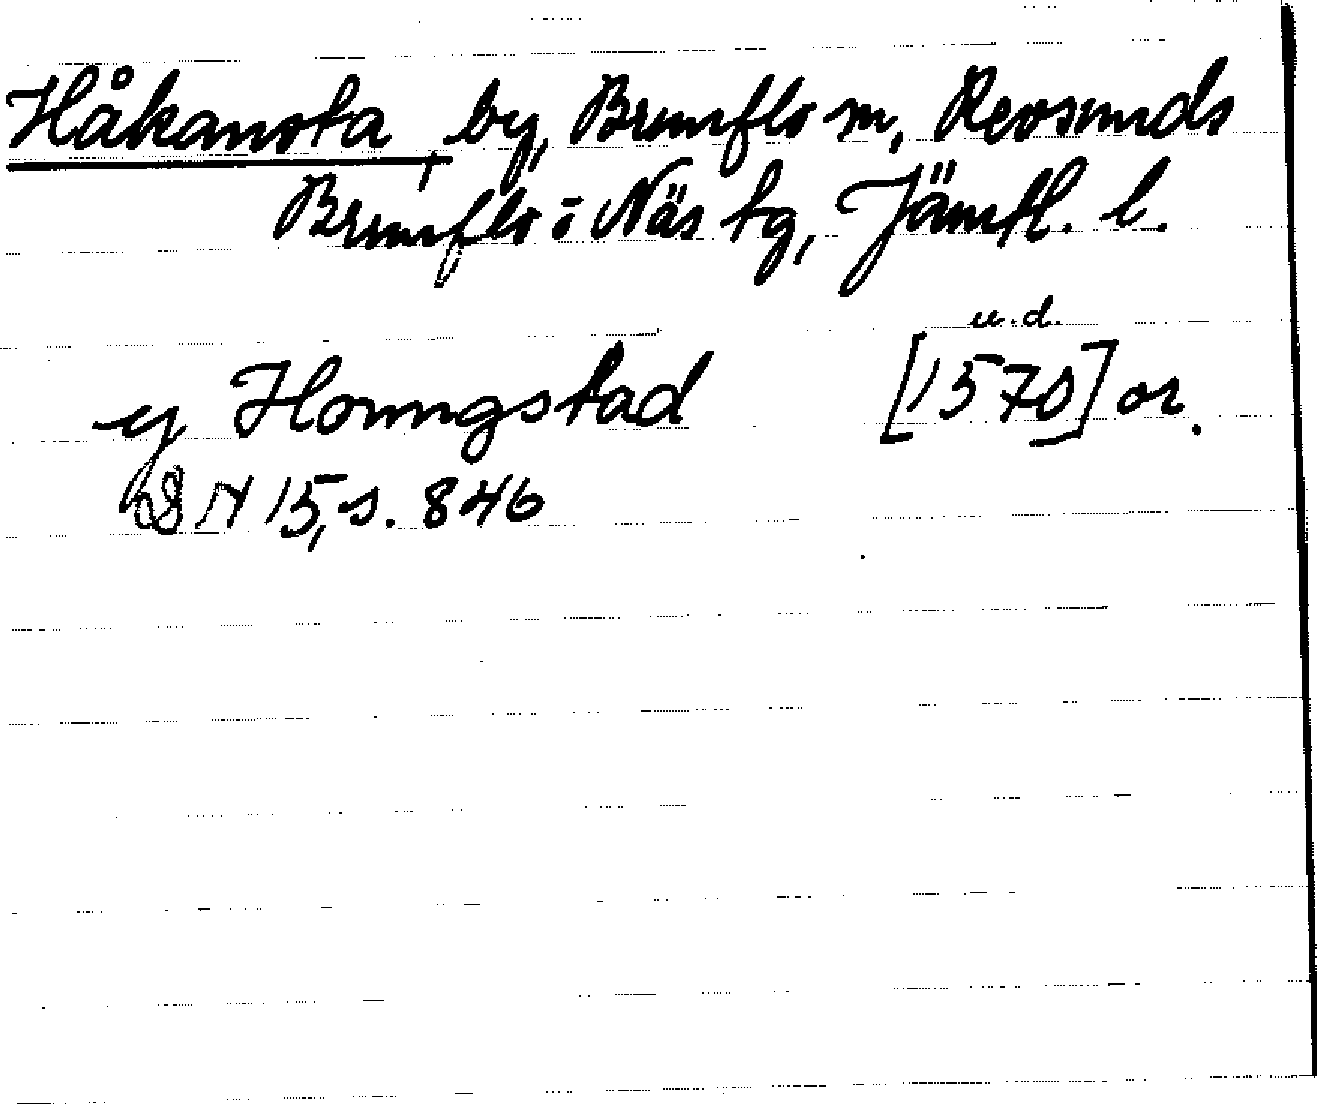 Håkansta, by, Brunflo sn, Revsunds
Brunflo i Näs tg, Jämtl. l.
u.d.
y Honngstad [1570] or.
DN 15, s. 846